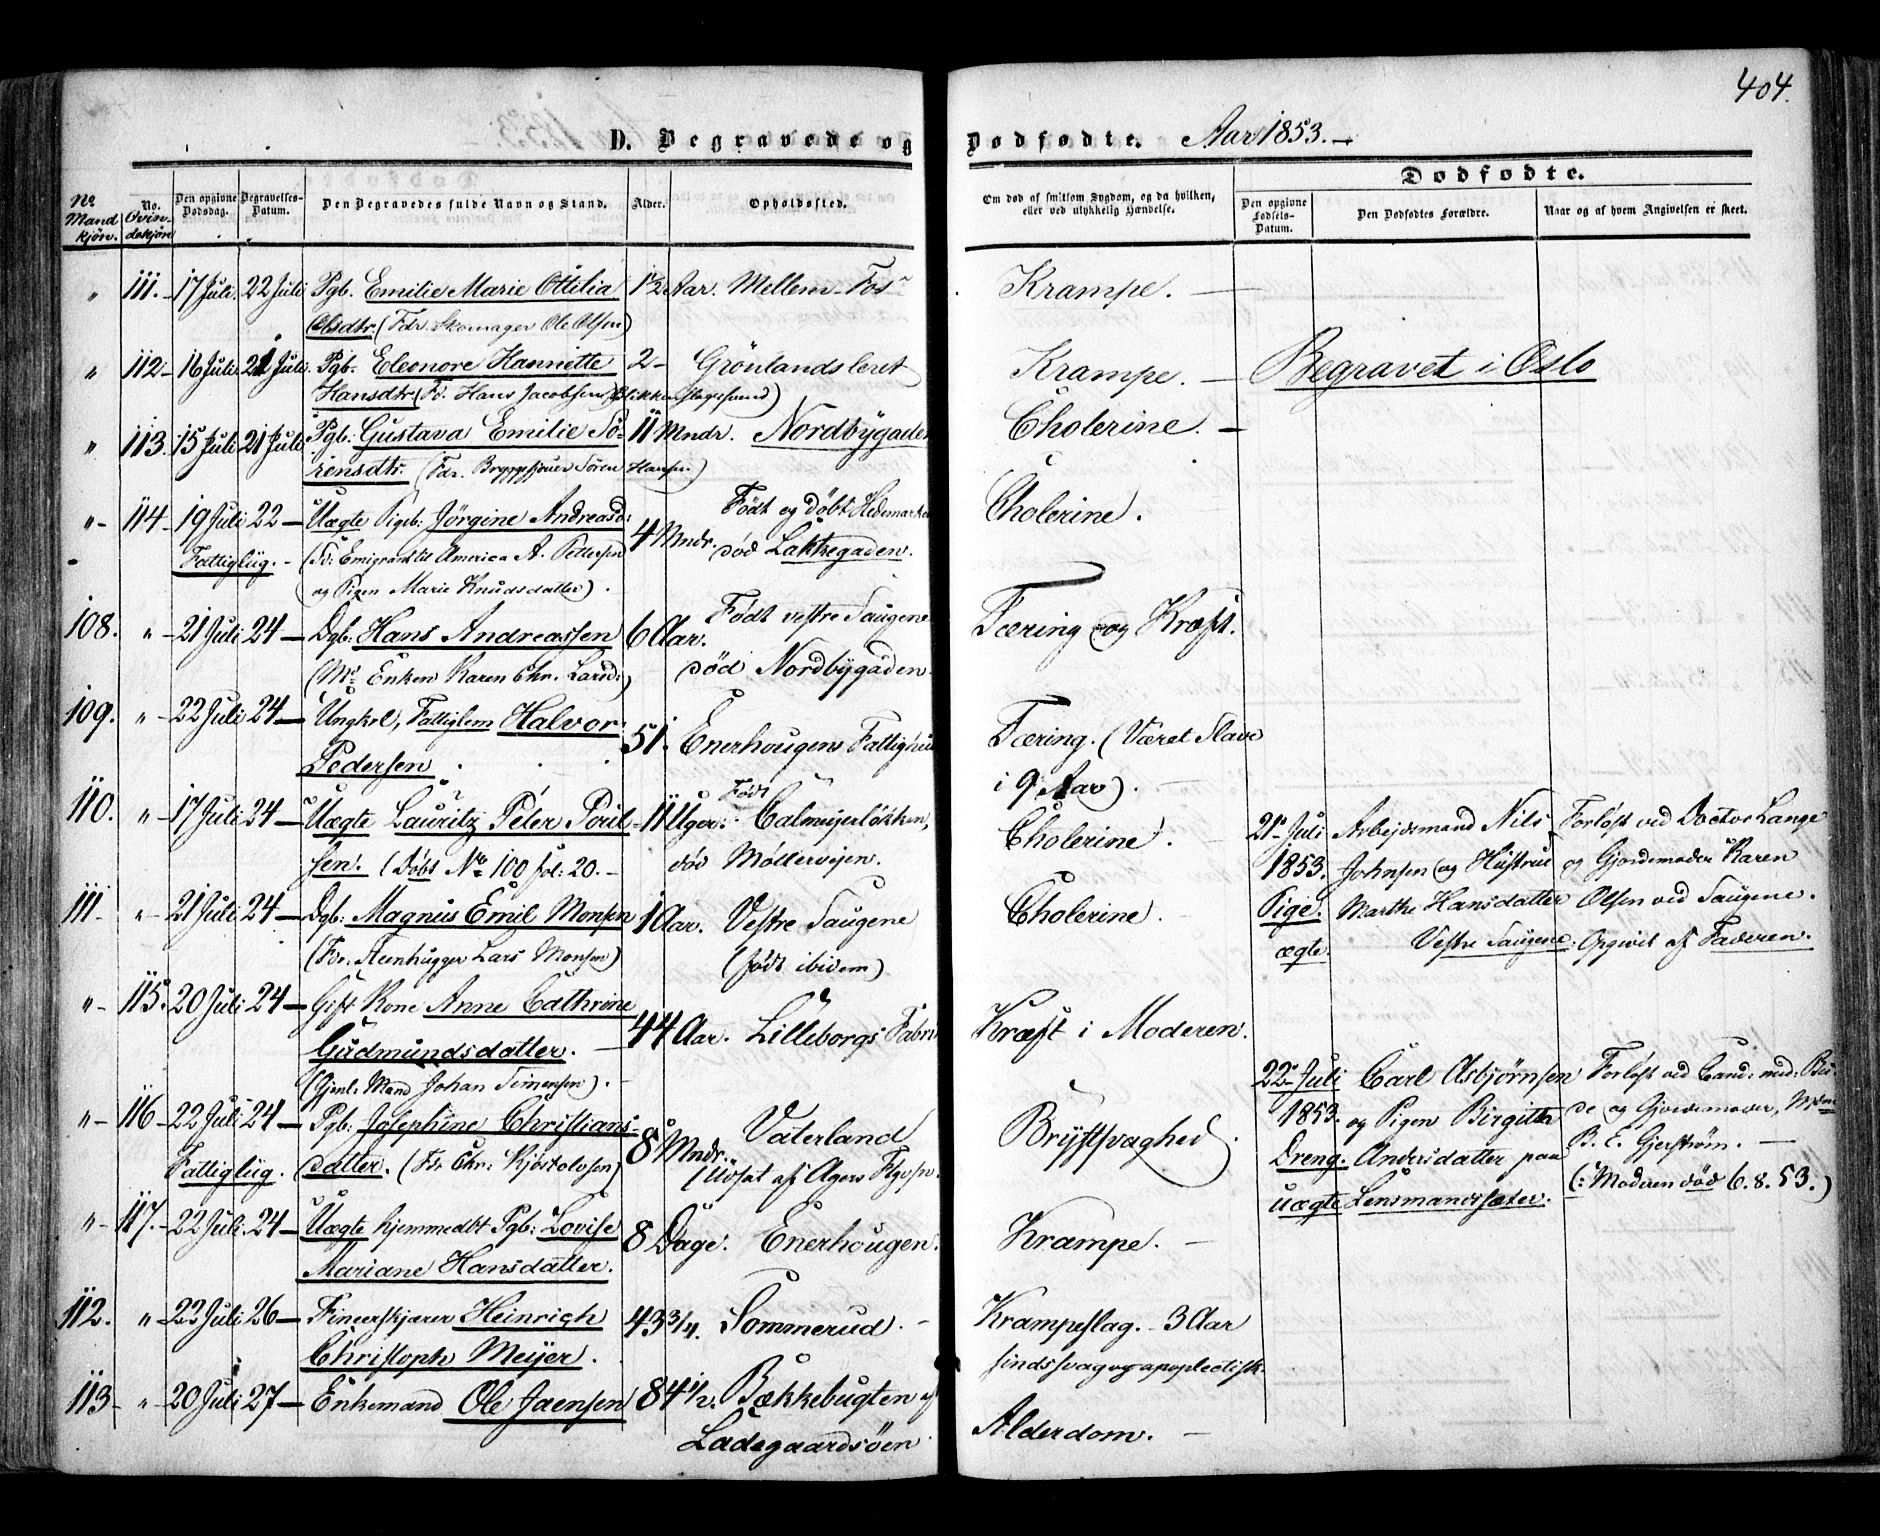 404.
D. Begravede og Dødfødte. Aar 1853.
No Mandkjøn.
No. Qvindekjøn
Den opgivne Dødsdag.
Begravelses-Datum.
Den Begravedes fulde Navn og Stand.
Alder.
Opholdssted.
Om død af smitsom Sygdom, og da hvilken, eller ved ulykkelig Hændelse.
Dødfødte.
Den opgivne Fødsels-Datum.
Den Dødfødtes Forældre.
Naar og af hvem Angivelsen er skeet.
" 111. 17 Juli. 22 Juli Pgb. Emilie Marie Ottilia 1½ Aar. Mellem-Fos Krampe. —
Olsdtr. (Fdr. Skomager Ole Olsen)
" 112 - 16 Juli. 21 Juli. Pgb. Eleonore Hannette 2 - Grönlandsleret Krampe. — Begravet i Oslo
Hansdtr. (Fd. Hans Jacobsen, Blikkenslagersvend)
" 113. 15 Juli 21 Juli Pgb: Gustava Emilie Sö- 11 Mndr. Nordbygaden Cholerine. —
rensdtr. (Fdr. Sören Hansen)
" - 114 - 19 Juli 22 — Uægte Pigeb: Jörgine Andreasd: 4 Mndr. Født og døbt Hedemarken Cholerine.
Fattiglüg. - (Fd: Emigrant til America A. Pettersen død Lakkegaden.
og Pigen Marie Knudsdatter).
108. " - 21 Juli 24 — Dgb: Hans Andreassen 6 Aar. Født vestre Saugene Tæring og Kræft.
(Mr. Enken Karen Chr. Larsd:) død Nordbygaden.
109. " - 22 Juli 24 — Ungkrl, Fattiglem Halvor 51. Enerhougens Fattighus Tæring. (Været Slave
Pedersen i 9 Aar). —
110. " - 17 Juli 24 — Uægte Lauritz Peter Poul- 11 Uger. Født Calmeyerløkken, Cholerine. —
sen. (Døbt No 100 fol: 20. - død Møllerveien.
111. " - 21 Juli 24 — Dgb: Magnus Emil Monsen 1 Aar. Vestre Saugene Cholerine. —
(Fdr. Steenhugger Lars Monsen) (født ibidem)
21 Juli Arbejdsmand Nils Forløst ved Doctor Lange
1853. Johnsen og Hustrue og Gjordemoder Karen
Pige. Marthe Hansdatter Olsen ved Saugene.
ægte. Vestre Saugene. Opgivet af Faderen.
" - 115. 20 Juli 24 — Gift Kone Anne Cathrine 44 Aar. Lilleborgs Fabrik Kræft i Moderen.
Gudmundsdatter. —
(Gjenl. Mand Johan Simensen). -
" - 116 - 22 Juli 24 — Pgb: Josephine Christians- 8 Mndr. Vaterland Brystsvaghed.
Fattiglüg. datter. (Fdr Chr: Kjøstolvsen) (Udsat af Agers Fgvsn.
22 Juli Carl Asbjørnsen Forløst ved Cand: med:
1853. og Pigen Birgitta og Gjordemoder, Mdme
Dreng. Andersdatter paa B. E. Gjerstrøm. —
uægte Lensmandssæter. (: Moderen død 6. 8. 53.)
" - 117. - 22 Juli. 24 — Uægte hjemmedbt Pgb: Lovise 8 Dage. Enerhougen. Krampe. —
Mariane Hansdatter.
112. " - 22 Juli 26 — Fineerskjærer Heinrich 43¾. Sommerud. - Krampeslag. - 3 Aar
Christoph Meijer. sindssvag og apoplectisk.
113 - " - 20 Juli 27 — Enkemand Ole Jaensen 84½. Bækkebugten af Alderdom. —
Ladegaardsöen